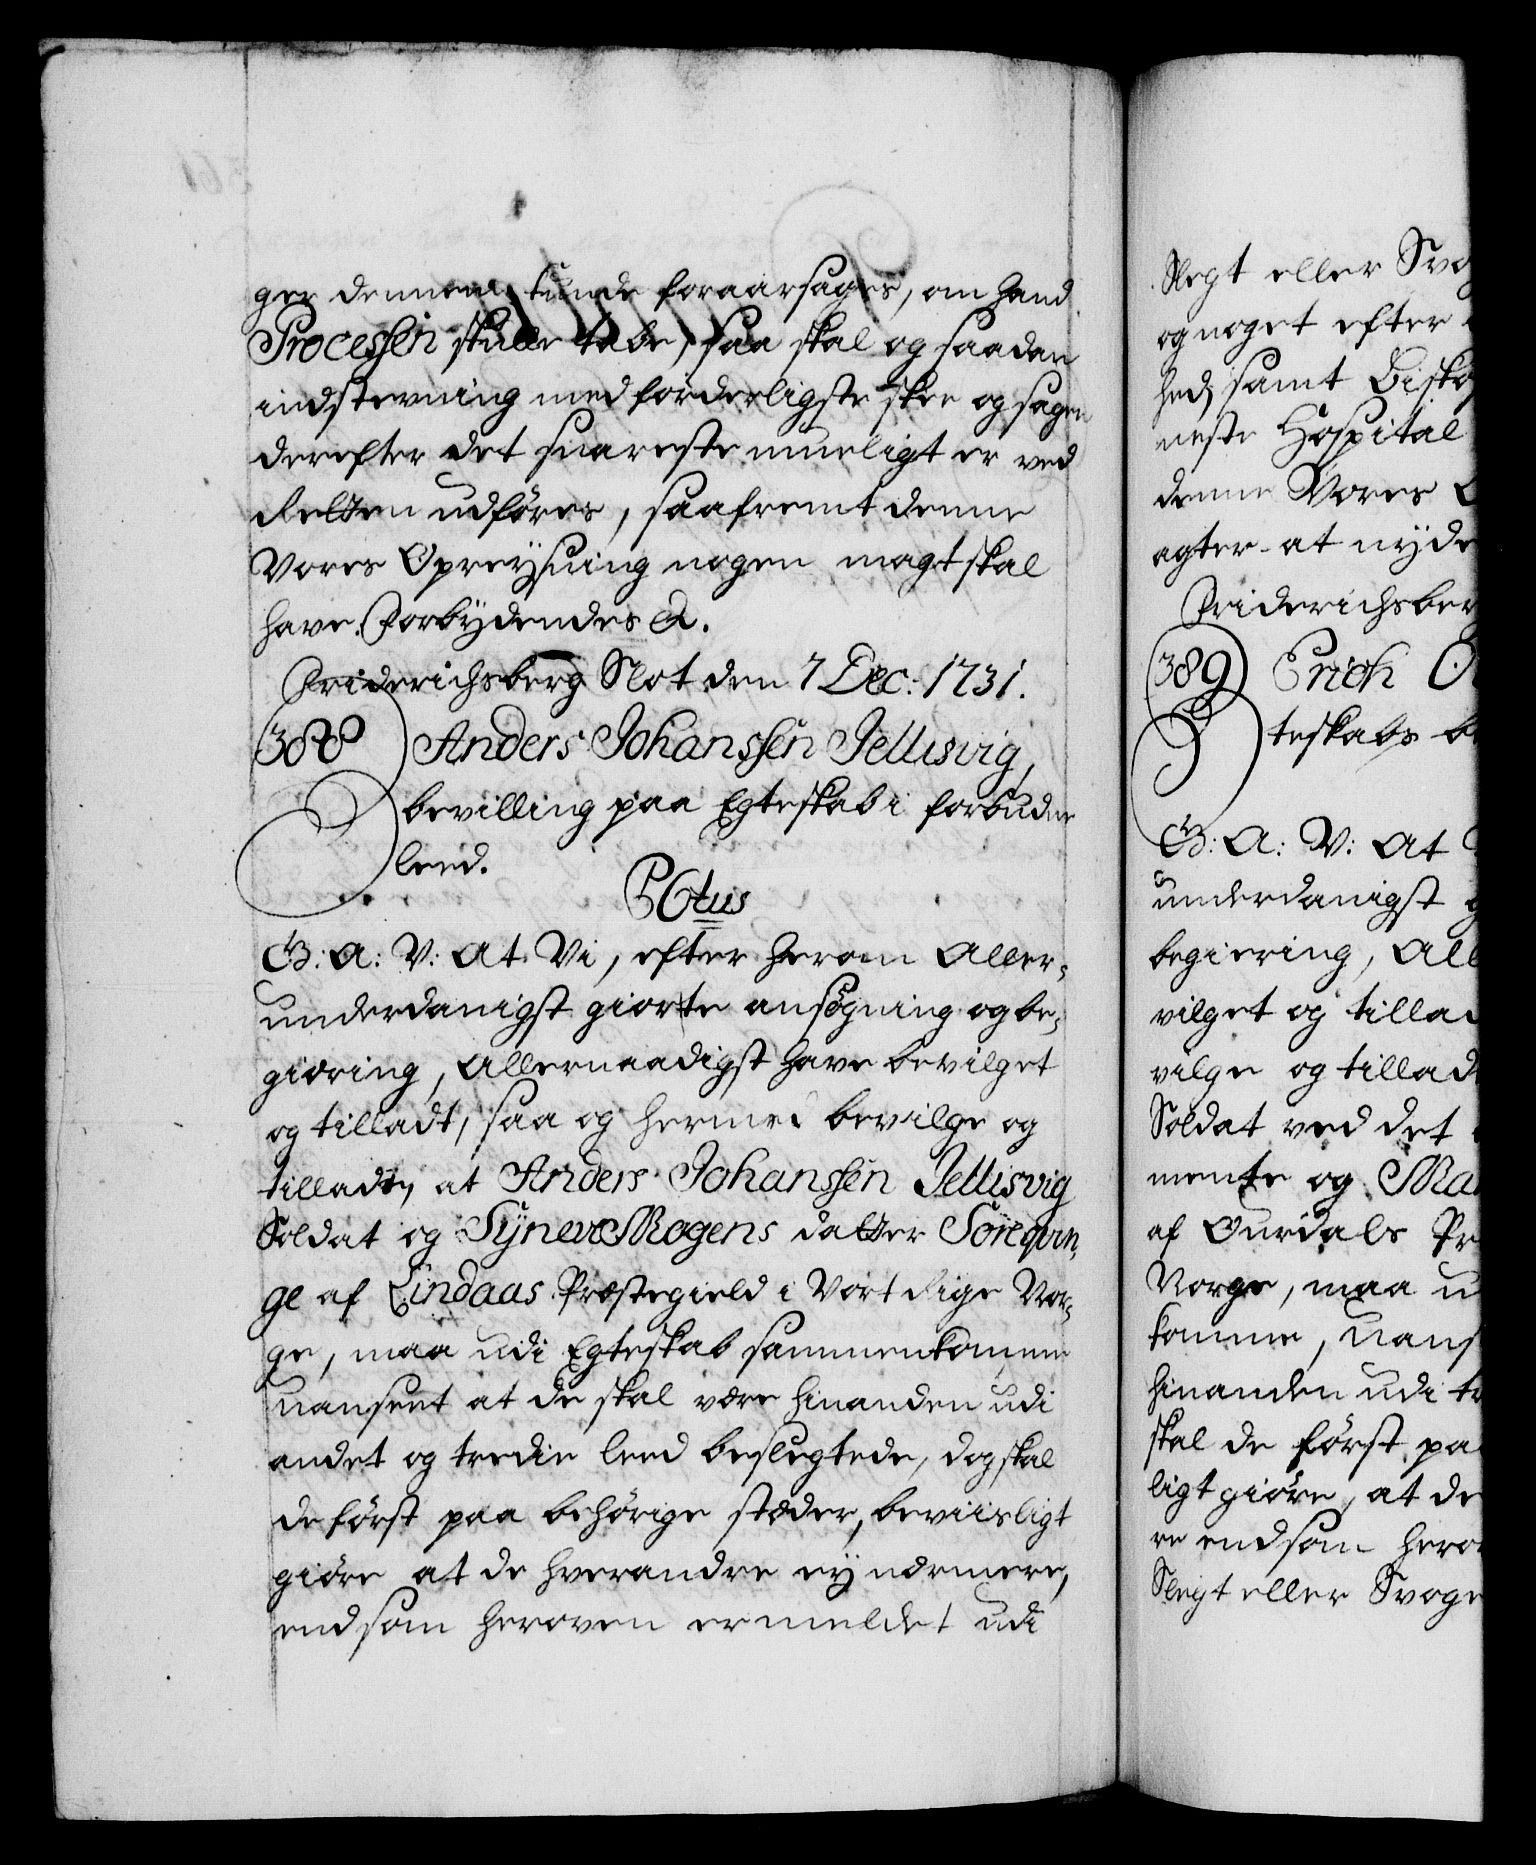 ger dennem kunde foraarsages, om hand
Processen skulle tabe, saa skal og saadan
indstevning med forderligste skee og sagen
derefter det snareste mueligt er ved
Retten udføres, saafremt denne
Vores Opreysning nogen magt skal
have. Forbydendes &.
Friderichsberg Slot den 7 Dec: 1731.
388 Anders Johanssen Jellisvig,
bevilling paa Egteskab i forbudne
leed.
C6tus
G: A: V: At Vi, efter herom Aller-
underdanigst giorte ansøgning og be-
giæring, Allernaadigst have bevilget
og tilladt, saa og hermed bevilge og
tillade, at Anders Johanssen Jellisvig
Soldat og Syneve Mogens datter Söreqvin-
ge af Lindaas Præstegield i Vort Rige Nor-
ge, maa udi Egteskab sammenkomme
uanseet at de skal være hinanden udi
andet og tredie leed beslegtede, dog skal
de først paa behörige stæder, beviisligt
giöre at de hverandre ey nærmere,
end som heroven ermeldet udi
Slegt eller Svo
og noget efter
hed, samt Bisko
neste Hospital
denne Vores
agter at nyde
Friderichsber
389 Erich
teskabs be
G: A: V: At
underdanigst
begiering, All
vilget og tillad
vilge og tillad
Soldat ved det
mente og Ma
af Ourdals Pr
Norge, maa u
komme, uans
hinanden udi tr
skal de först paa
ligt giöre, at de
re end som hero
Slegt eller Svoge